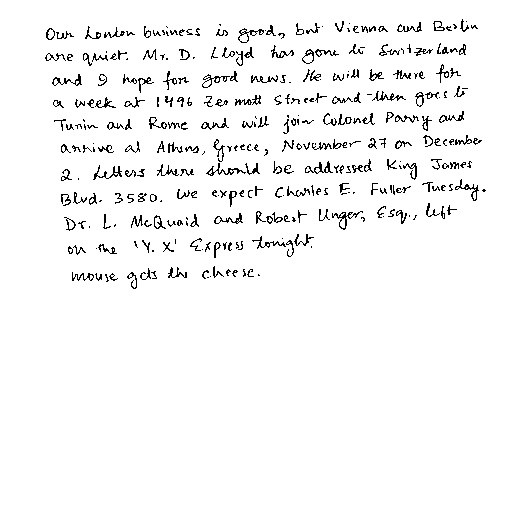 Our London business is good, but Vienna and Berlin
are quiet. Mr. D. Lloyd has gone to Switzerland
and I hope for good news. He will be there for
a week at 1496 Zermott Street and then goes to
Turin and Rome and will join Colonel Parry and
arrive at Athens, Greece, November 27 or December
2. Letters there should be addressed King James
Blvd. 3580. We expect Charles E. Fuller Tuesday.
Dr. L. McQuaid and Robert Unger, Esq., left
on the 'Y. X' Express tonight.
mouse gets the cheese.